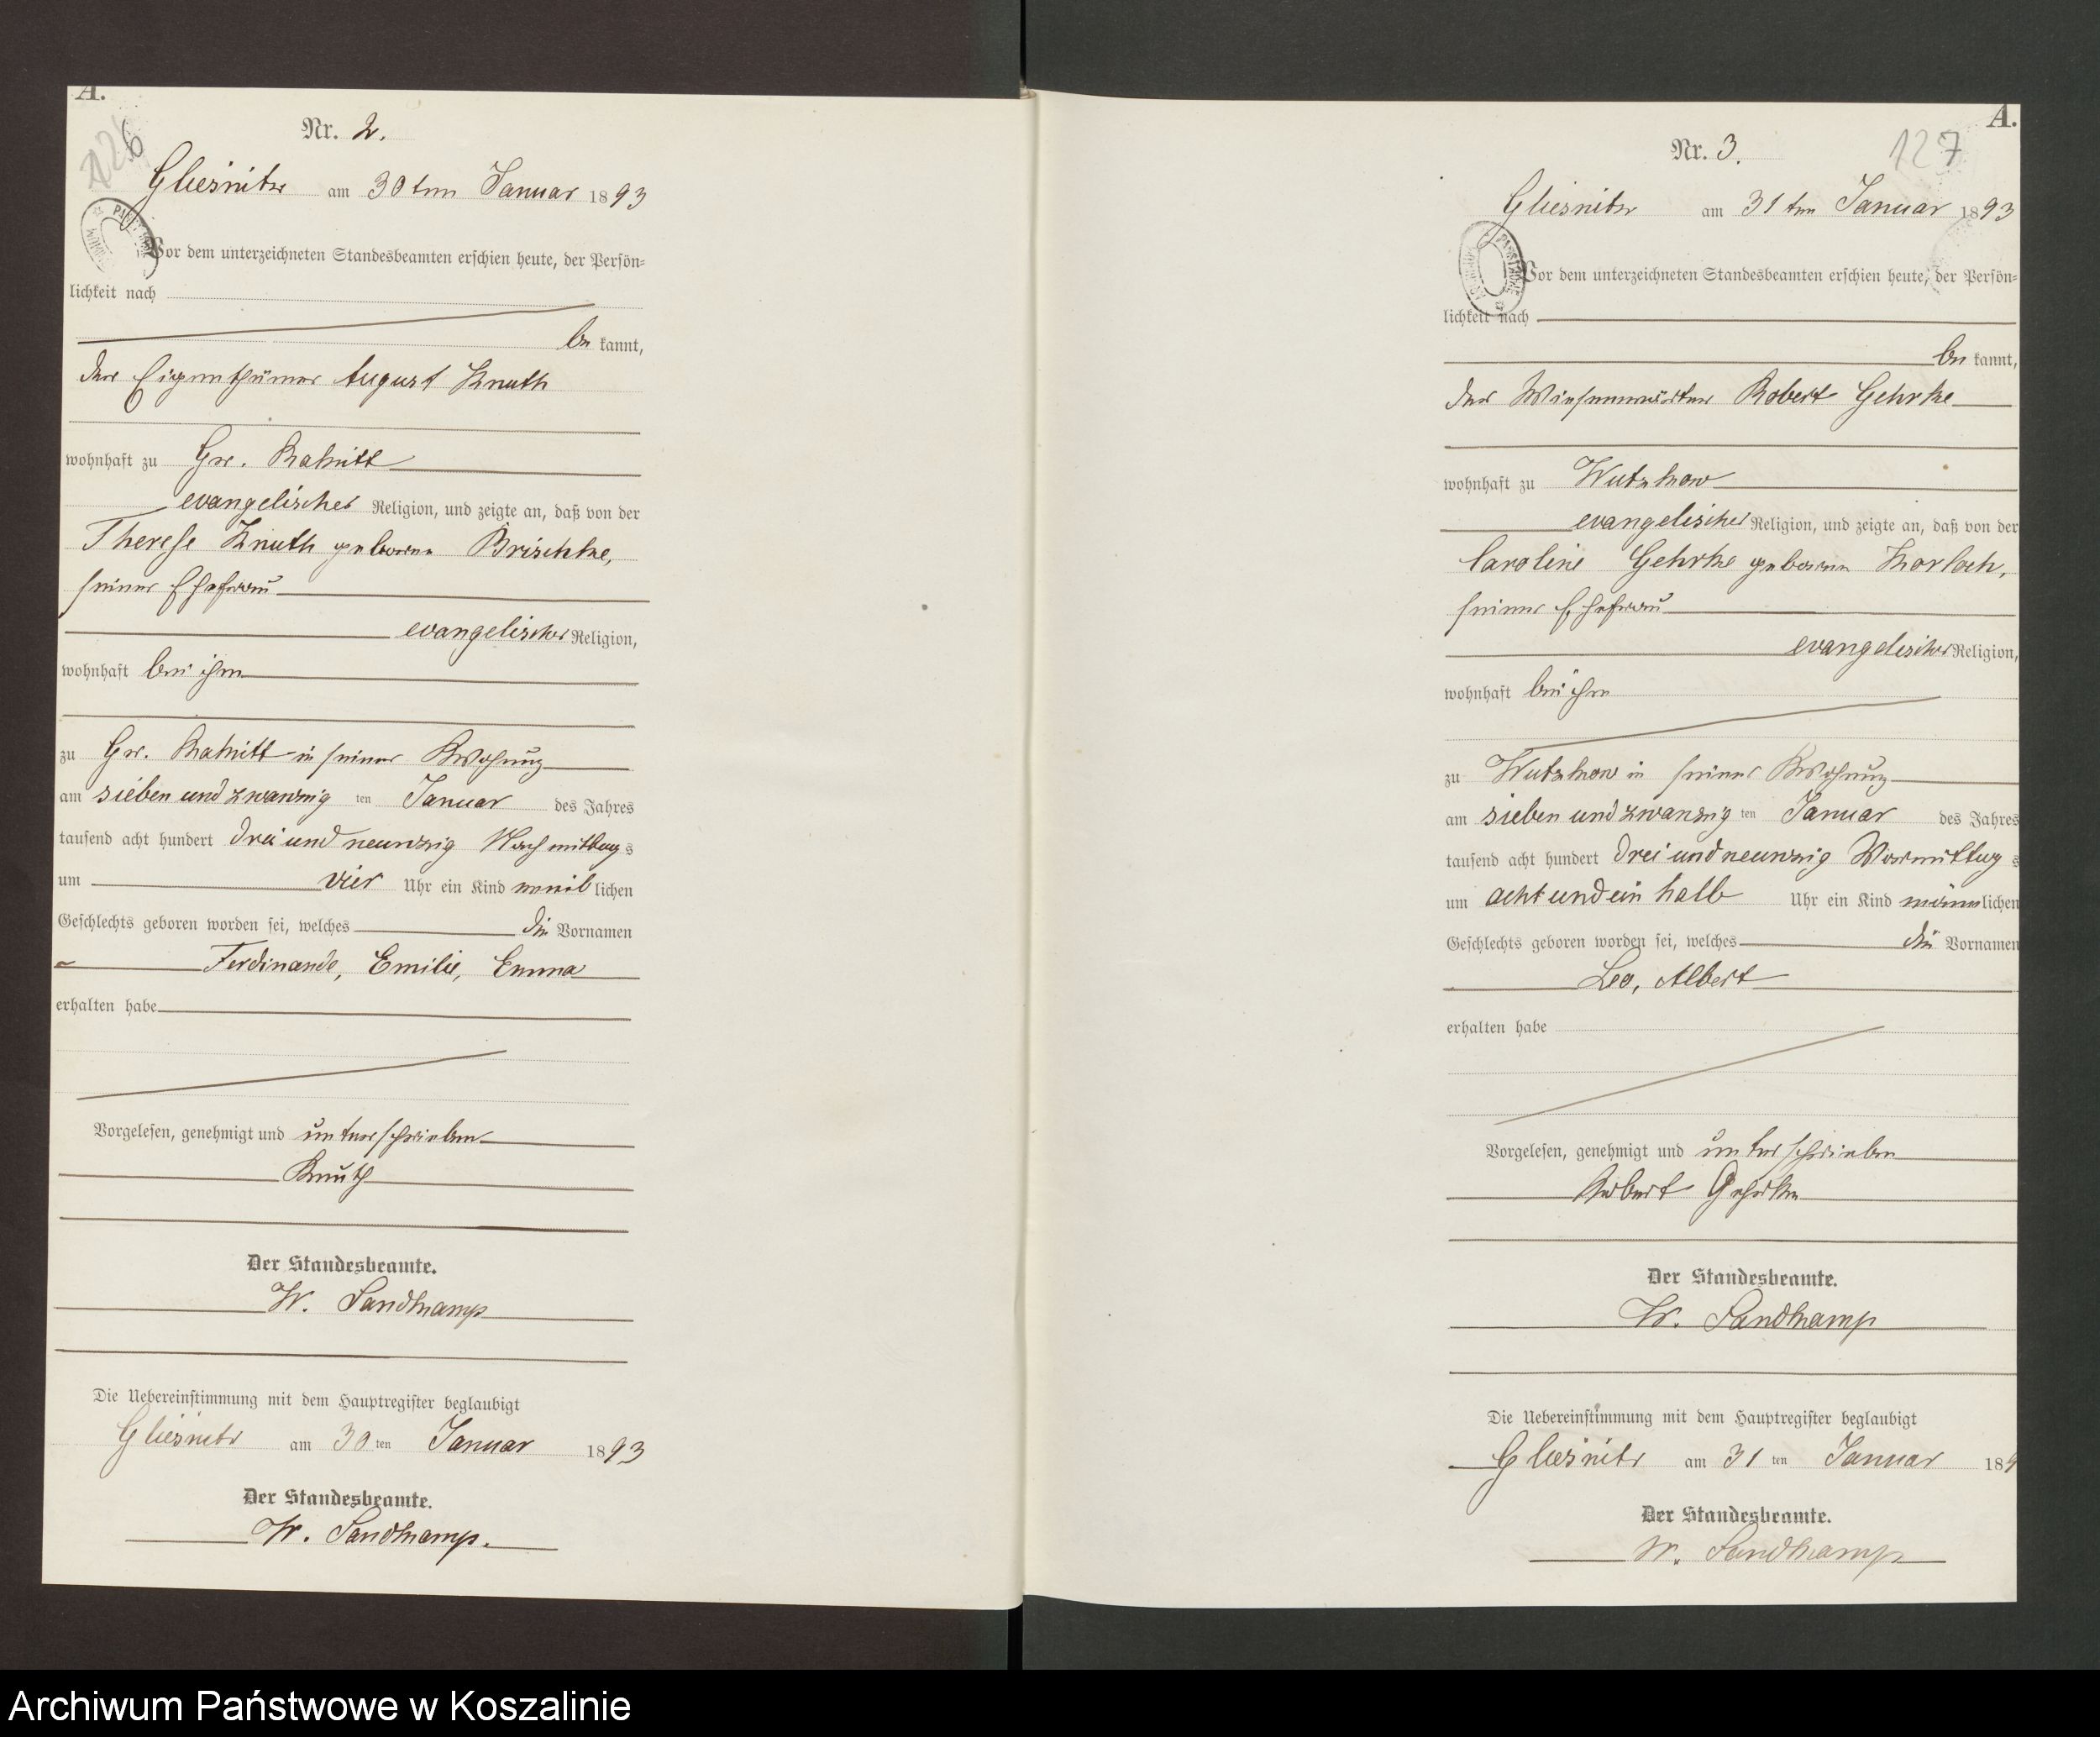 A.
126
Nr. 2.
Gliesnitz am 30ten Januar 1893
Vor dem unterzeichneten Standesbeamten erschien heute, der Persön=
lichkeit nach
be kannt,
der Eigenthümer August Knuth
wohnhaft zu Gr. Rakitt
evangelischer Religion, und zeigte an, daß von der
Therese Knuth geborene Brischke,
seiner Ehefrau
evangelischer Religion,
wohnhaft bei ihm
zu Gr. Rakitt in seiner Wohnung
am sieben und zwanzig ten Januar des Jahres
tausend acht hundert drei und neunzig Nachmittags
um vier Uhr ein Kind weiblichen
Geschlechts geboren worden sei, welches die Vornamen
Ferdinande, Emilie, Emma
erhalten habe
Vorgelesen, genehmigt und unterschrieben
Knuth
Der Standesbeamte.
W. Sandkamp
Die Uebereinstimmung mit dem Hauptregister beglaubigt
Gliesnitz am 30ten Januar 1893
Der Standesbeamte.
W. Sandkamp.
A.
127
Nr. 3.
Gliesnitz am 31ten Januar 1893
Vor dem unterzeichneten Standesbeamten erschien heute, der Persön=
lichkeit nach
be kannt,
der Wiesenwärter Robert Gehrke
wohnhaft zu Wutzkow
evangelischer Religion, und zeigte an, daß von der
Caroline Gehrke geborene
seiner Ehefrau
evangelischer Religion,
wohnhaft bei ihm
zu Wutzkow in seiner Wohnung
am sieben und zwanzig ten Januar des Jahres
tausend acht hundert drei und neunzig Vormittags
um acht und ein halb Uhr ein Kind männlichen
Geschlechts geboren worden sei, welches die Vornamen
Leo, Albert
erhalten habe
Vorgelesen, genehmigt und unterschrieben
Robert Gehrke
Der Standesbeamte.
W. Sandkamp
Die Uebereinstimmung mit dem Hauptregister beglaubigt
Gliesnitz am 31ten Januar 189
Der Standesbeamte.
W. Sandkamp
Archiwum Państwowe w Koszalinie